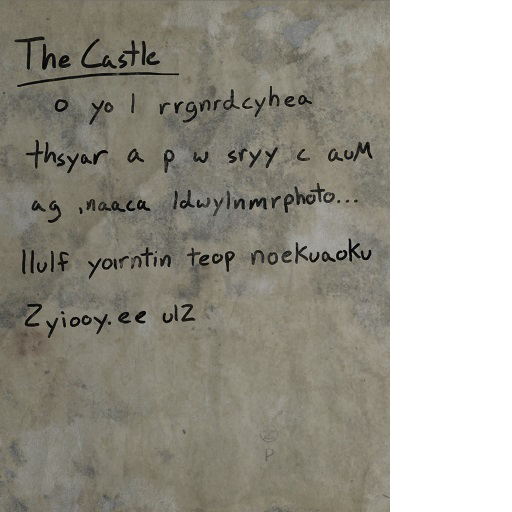 The Castle
o yo l rrgnrdcyhea
thsyar a p w sryy c auM
ag ,naaca ldwylnmrphoto...
llulf yoirntin teop noekuaoku
Zyiooy.ee ulZ
P